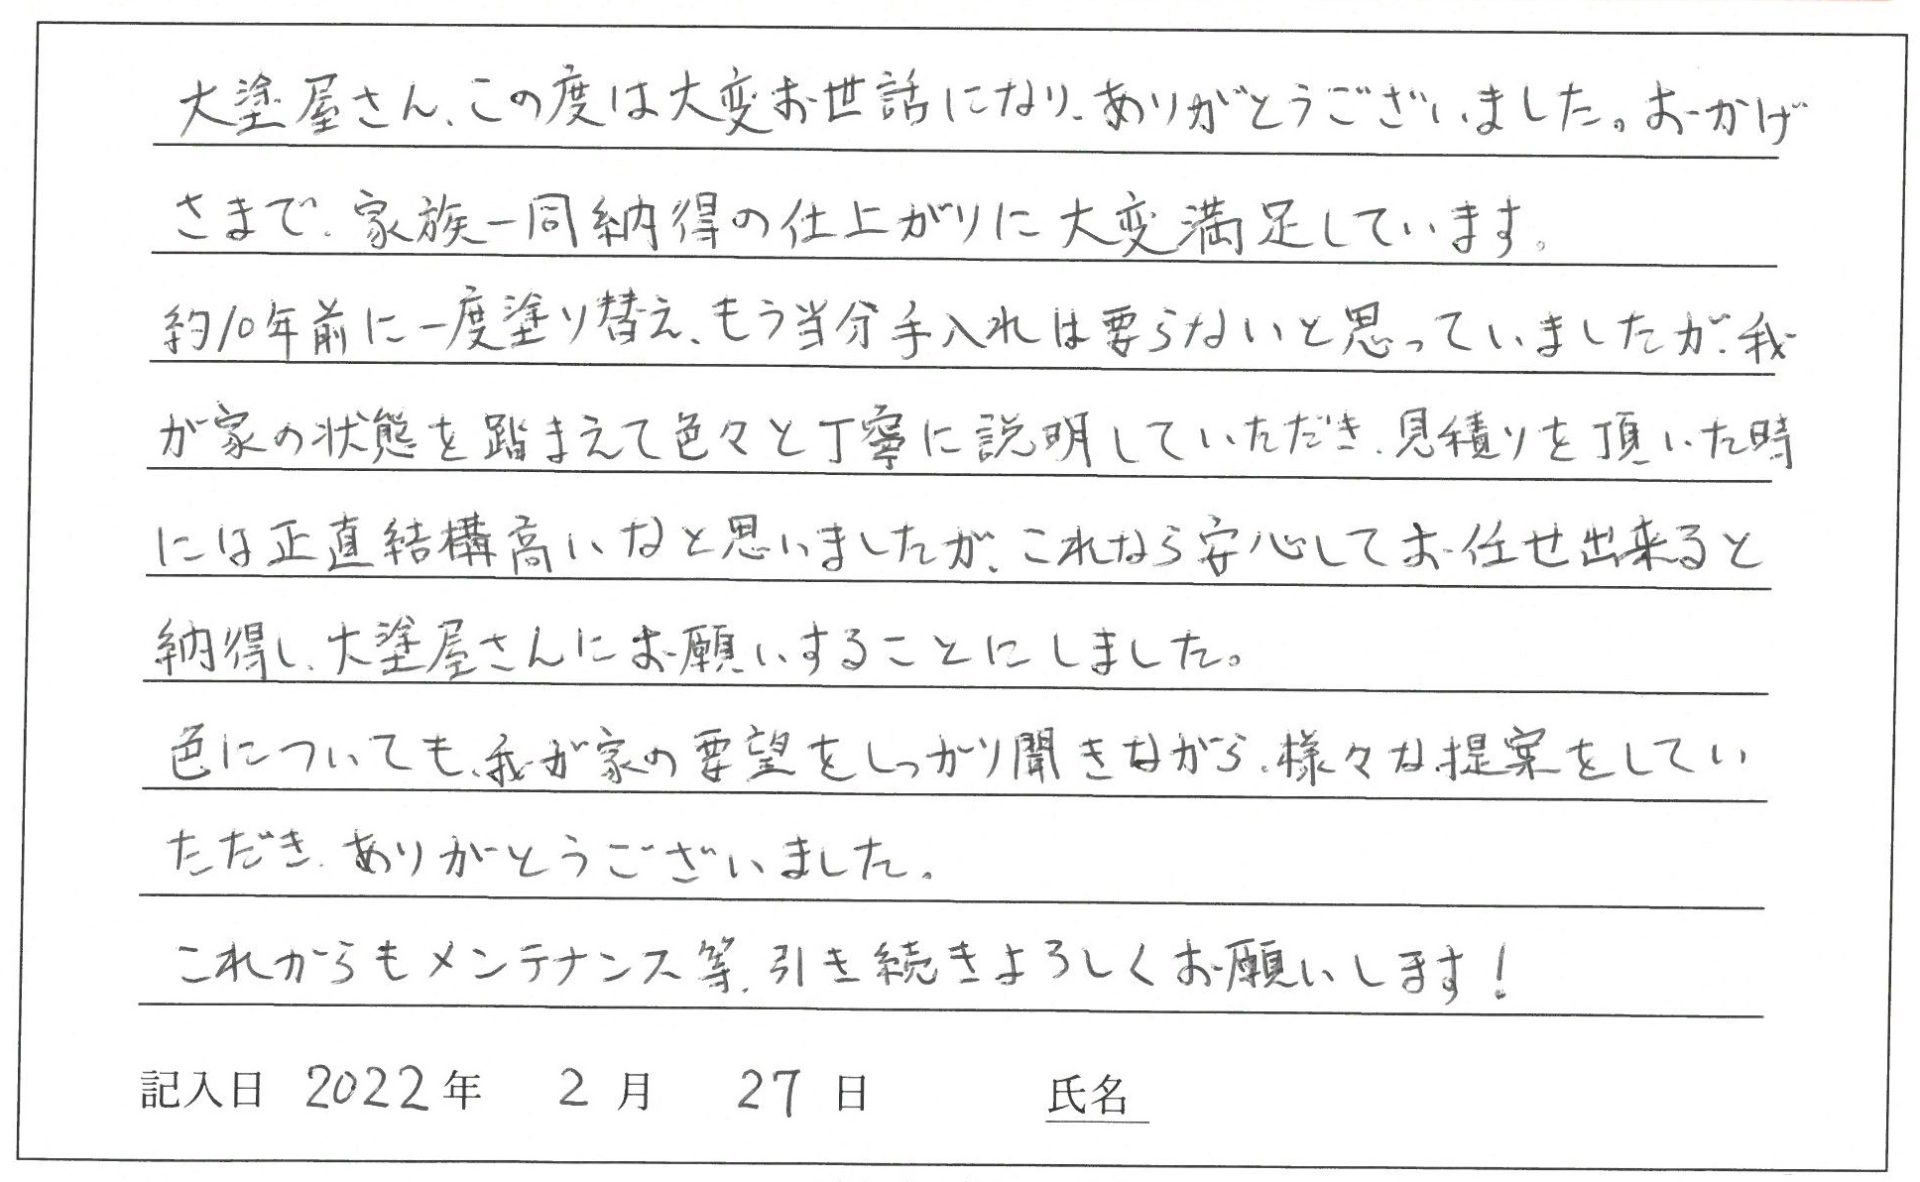 大塗屋さん、この度は大変お世話になり、ありがとうございました。おかげ
さまで、家族一同納得の仕上がりに大変満足しています。
約10年前に一度塗り替え、もう当分手入れは要らないと思っていましたが、我
が家の状態を踏まえて色々と丁寧に説明していただき、見積りを頂いた時
には正直結構高いなと思いましたが、これなら安心してお任せ出来ると
納得し、大塗屋さんにお願いすることにしました。
色についても、我が家の要望をしっかり聞きながら、様々な提案をしてい
ただき、ありがとうございました。
これからもメンテナンス等、引き続きよろしくお願いします！
記入日 2022年 2月 27日 氏名